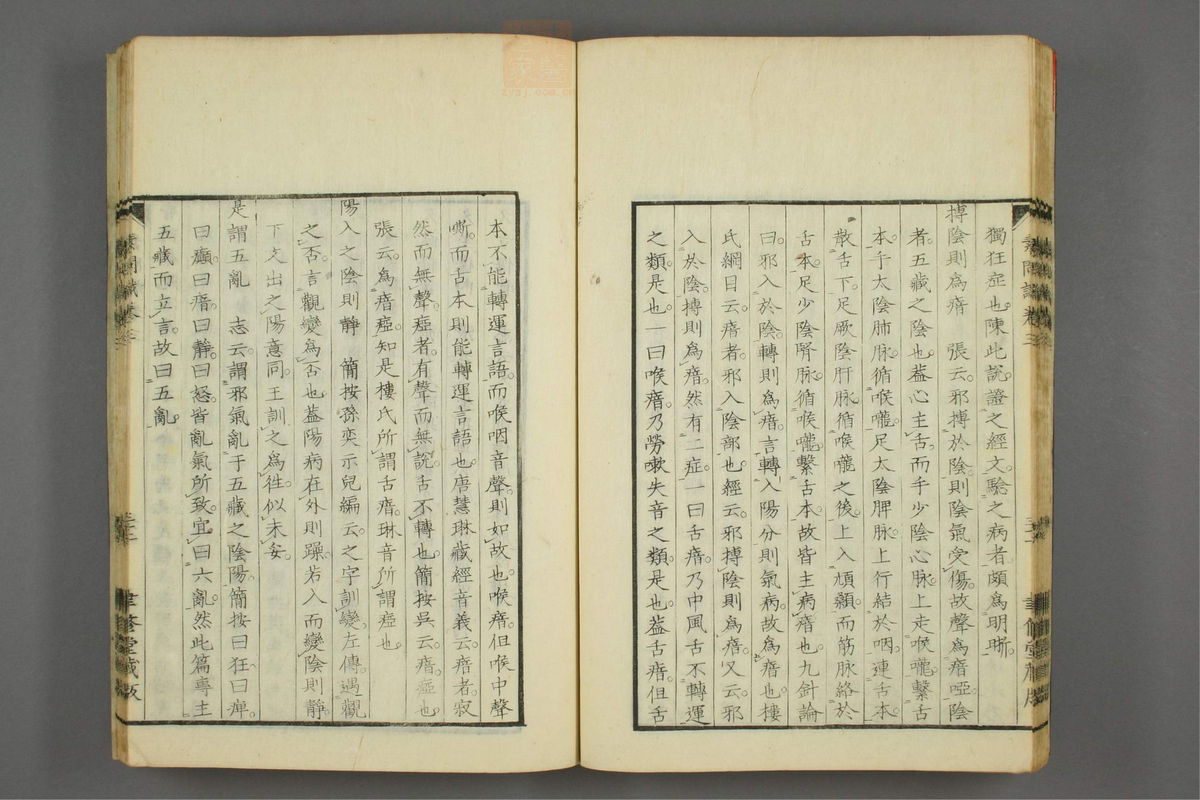 獨狂症也。陳此說。證之經文。驗之病者。頗為明晰。
搏陰則為瘖　張云。邪搏於陰。則陰氣受傷。故聲為瘖啞。陰
者。五藏之陰也。葢心主舌。而手少陰心脉。上走喉嚨。繫舌
本。手太陰肺脉。循喉嚨。足太陰脾脉。上行結於咽。連舌本。
散舌下。足厥陰肝脉。循喉嚨之後。上入頏顙。而筋脉絡於
舌本。足少陰腎脉。循喉嚨。繫舌本。故皆主病瘖也。九針論
曰。邪入於陰。轉則為瘖。言轉入陽分則氣病。故為瘖也。樓
氏綱目云。瘖者。邪入陰部也。經云。邪搏陰則為瘖。又云。邪
入於陰。搏則為瘖。然有二症。一曰舌瘖。乃中風舌不轉運
之類是也。一曰喉瘖。乃勞嗽失音之類是也。葢舌瘖。但舌
本不能轉運言語。而喉咽音聲。則如故也。喉瘖。但喉中聲
嘶。而舌本則能轉運言語也。唐慧琳藏經音義云。瘖者。寂
然而無聲。瘂者。有聲而無說。舌不轉也。簡按吳云。瘖。瘂也。
張云。為瘖瘂。知是樓氏所謂舌瘖。琳音所謂瘂也。
陽入之陰則靜　簡按孫奕示兒編云。之字訓變。左傳。遇觀
之否。言觀變為否也。葢陽病在外則躁。若入而變陰則靜。
下文出之陽意同。王訓之為徃。似未妥。
是謂五亂　志云。謂邪氣亂于五藏之陰陽。簡按曰狂。曰痺。
曰癲。曰瘖。曰靜。曰怒。皆亂氣所致。宜曰六亂。然此篇專主
五藏而立言。故曰五亂。
素問識卷三
聿修堂藏版